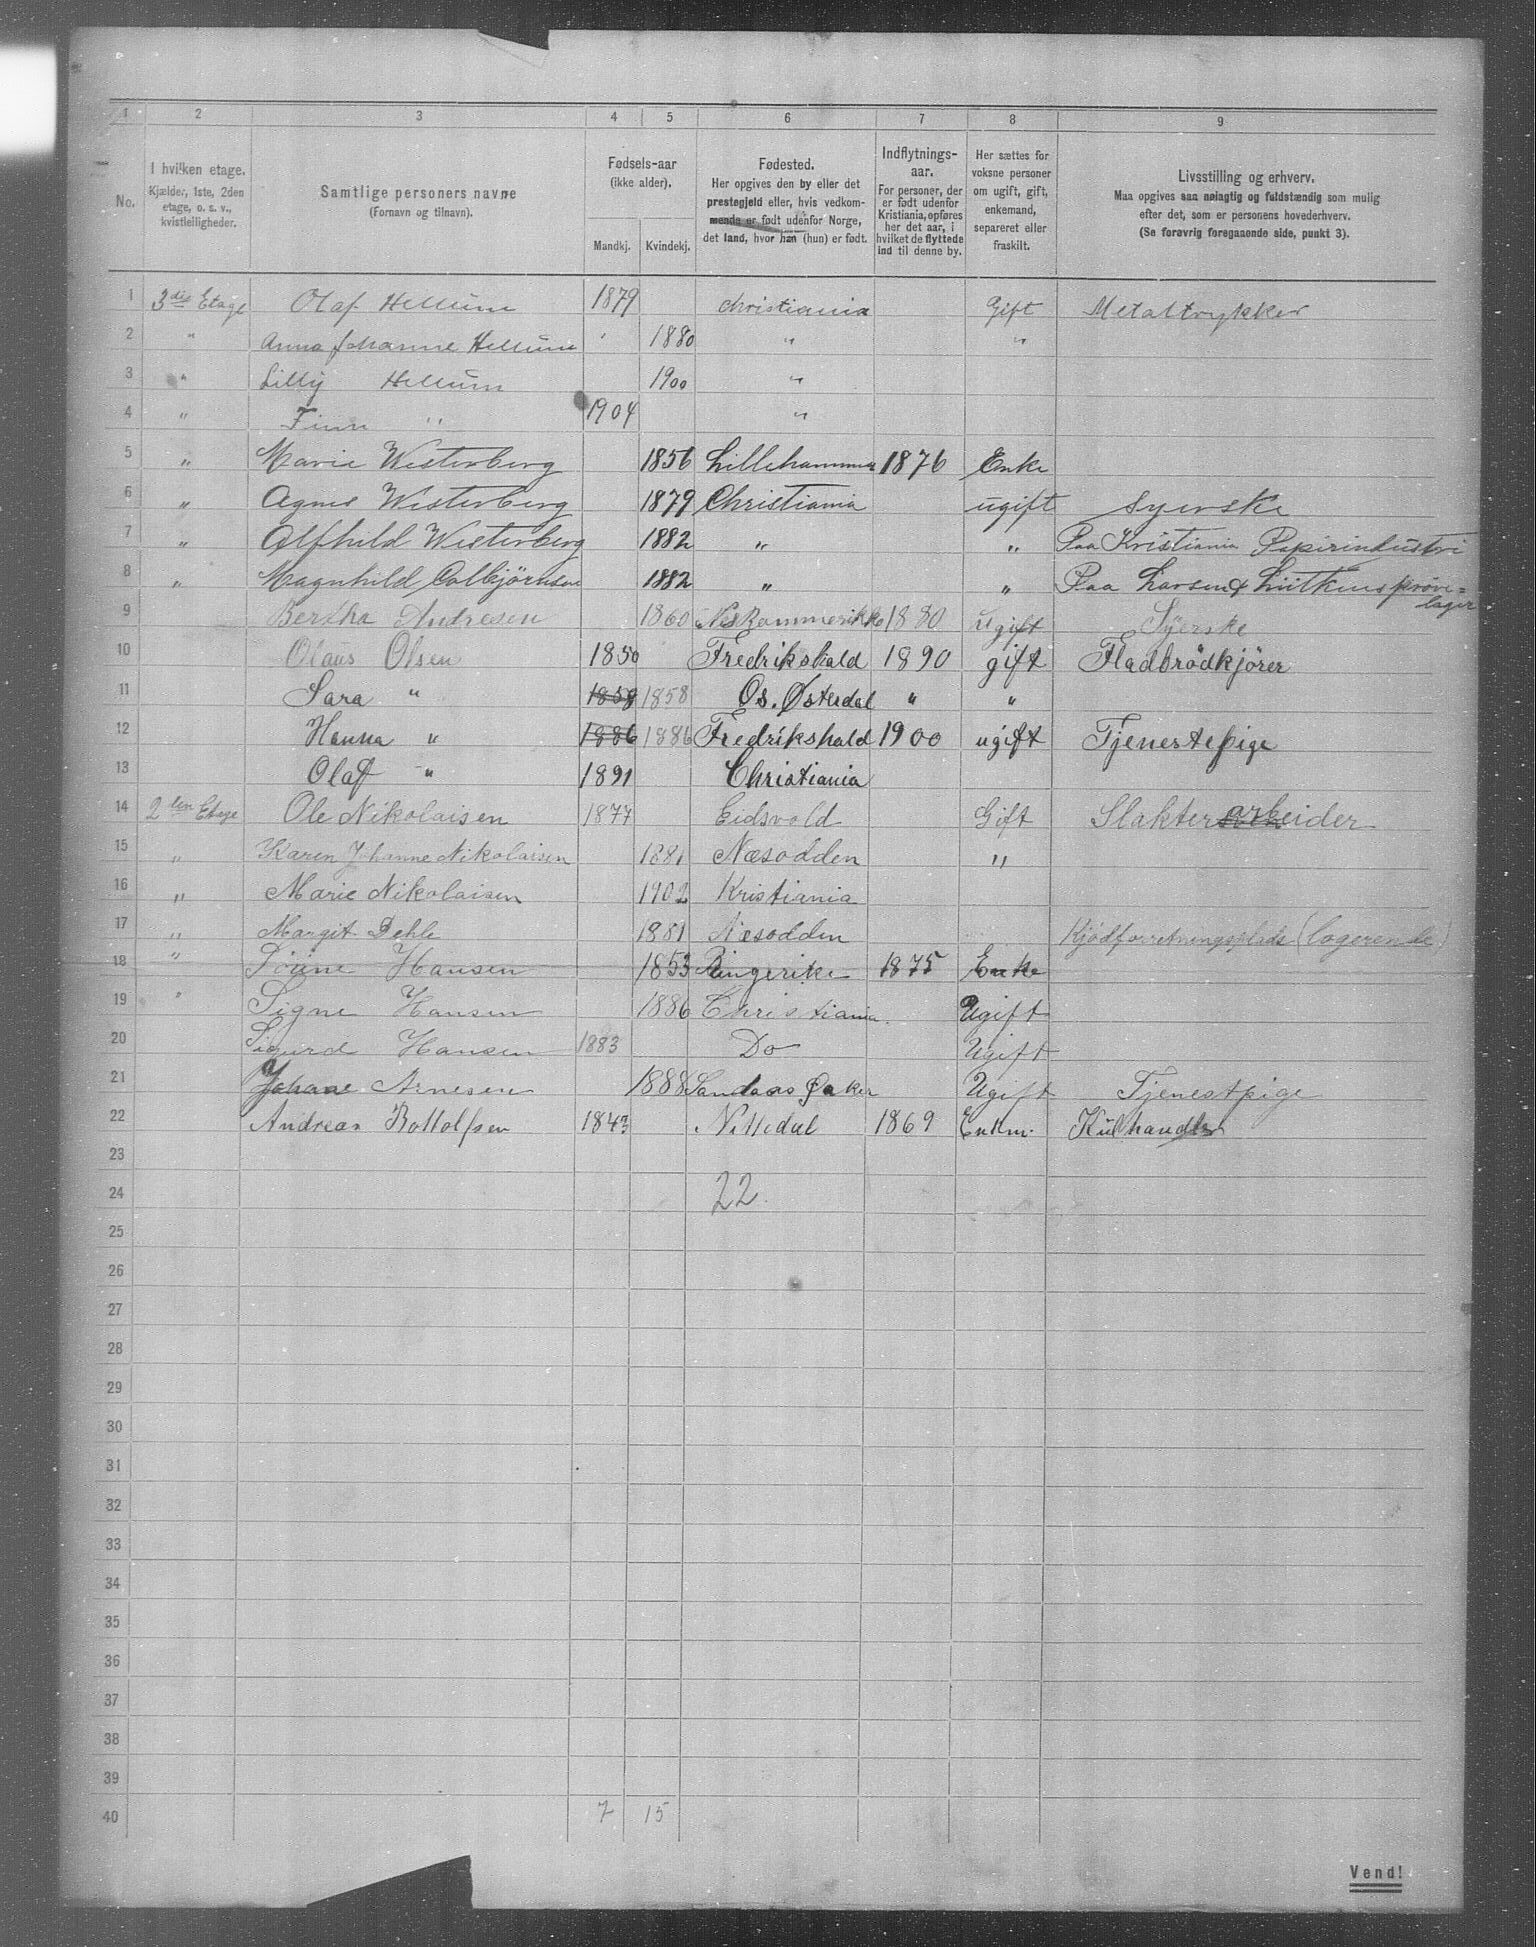 1 2 3 4 5 6 7 8 9
No.
I hvilken etage.
Kjælder, 1ste, 2den
etage, o. s. v.,
kvistleiligheder.
Samtlige personers navne
(Fornavn og tilnavn).
Fødsels-aar
(ikke alder).
Mandkj. Kvindekj.
Fødested.
Her opgives den by eller det
prestegjeld eller, hvis vedkom-
mende er født udenfor Norge,
det land, hvor han (hun) er født.
Indflytnings-
aar.
For personer, der
er født udenfor
Kristiania, opføres
her det aar, i
hvilket de flyttede
ind til denne by.
Her sættes for
voksne personer
om ugift, gift,
enkemand,
separeret eller
fraskilt.
Livsstilling og erhverv.
Maa opgives saa nøiagtig og fuldstændig som mulig
efter det, som er personens hovederhverv.
(Se forøvrig foregaaende side, punkt 3).
1 3die Etage Olaf Hellum 1879 christiania Gift Metaltrykker
2 " Anna Johanne Hellum " 1880 " "
3 " Lilly Hellum 1900 "
4 " Finn " 1904 "
5 " Marie Westerberg 1856 Lillehammer 1876 Enke
6 " Agnes Westerberg 1879 Christiania ugift Syerske
7 " Alfhild Westerberg 1882 " " Paa Kristiania Papirindustri
8 " Magnhild Colbjørnsen 1882 " " Paa Larsen & Lütkens prøve=
lager
9 Bertha Andresen 1860 Nes Rommerikke 1880 ugift Syerske
10 Olaus Olsen 1850 Fredrikshald 1890 gift Fladbrødkjører
11 Sara " 1858 1858 Os. Østerdal " "
12 Hanna " 1886 1886 Fredrikshald 1900 ugift Tjenestepige
13 Olaf " 1891 Christiania
14 2den Etage Ole Nikolaisen 1877 Eidsvold Gift Slakterarbeider
15 " Karen Johanne Nikolaisen 1881 Næsodden "
16 " Marie Nikolaisen 1902 Kristiania
17 " Margit Dehle 1881 Næsodden Kjødforretningsplads (logerende)
18 " Hansen 1853 Ringerike 1875 Enke
19 " Signe Hansen 1886 Christiania. Ugift
20 Sigurd Hansen 1883 Do Ugift
21 Johane Arnesen 1888 Ugift Tjenestpige
22 Andreas Bottolfsen 1843 Nittedal 1869 Enkm. Kulhandler
23
24 22.
25
26
27
28
29
30
31
32
33
34
35
36
37
38
39
40 7 15
Vend!